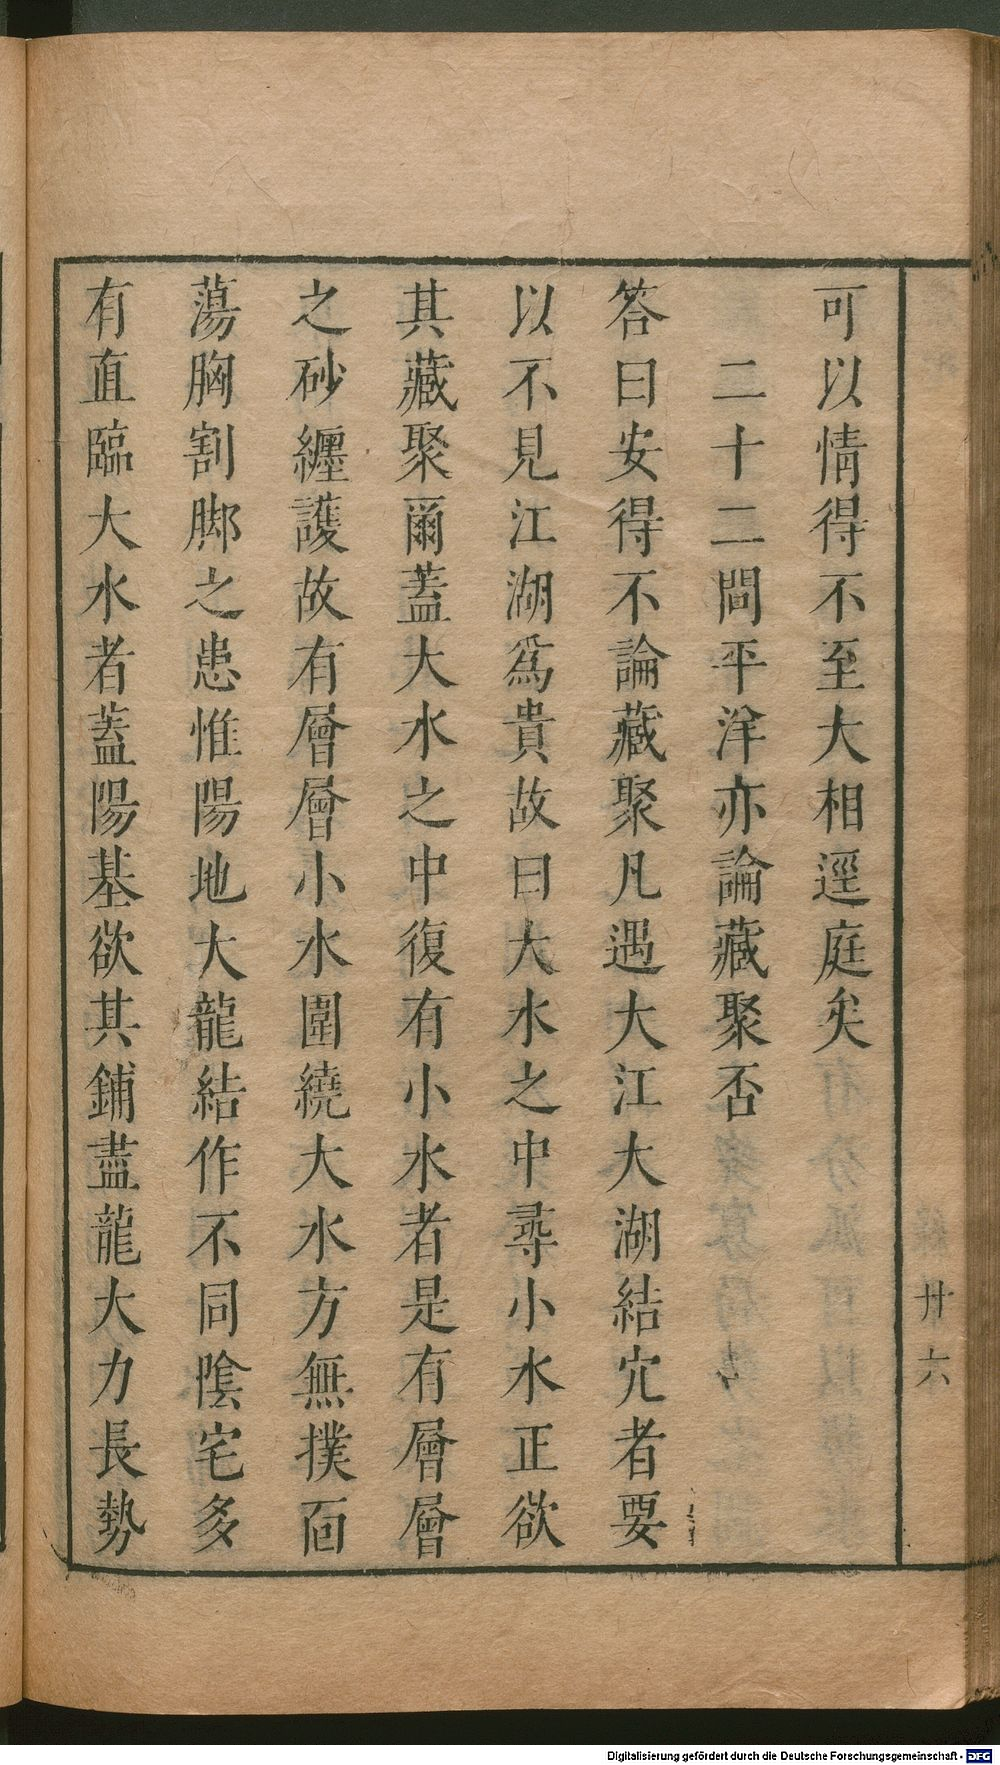 可以情得不至大相逕庭矣
二十二問平洋亦論藏聚否
答曰安得不論藏聚凡遇大江大湖結穴者要
以不見江湖爲貴故曰大水之中尋小水正欲
其藏聚爾蓋大水之中復有小水者是有層層
之砂纏護故有層層小水圍繞大水方無撲面
蕩胸割脚之患惟陽地大龍結作不同陰宅多
有直臨大水者蓋陽基欲其鋪盡龍大力長勢
卅六
Digitalisierung gefördert durch die Deutsche Forschungsgemeinschaft - DFG